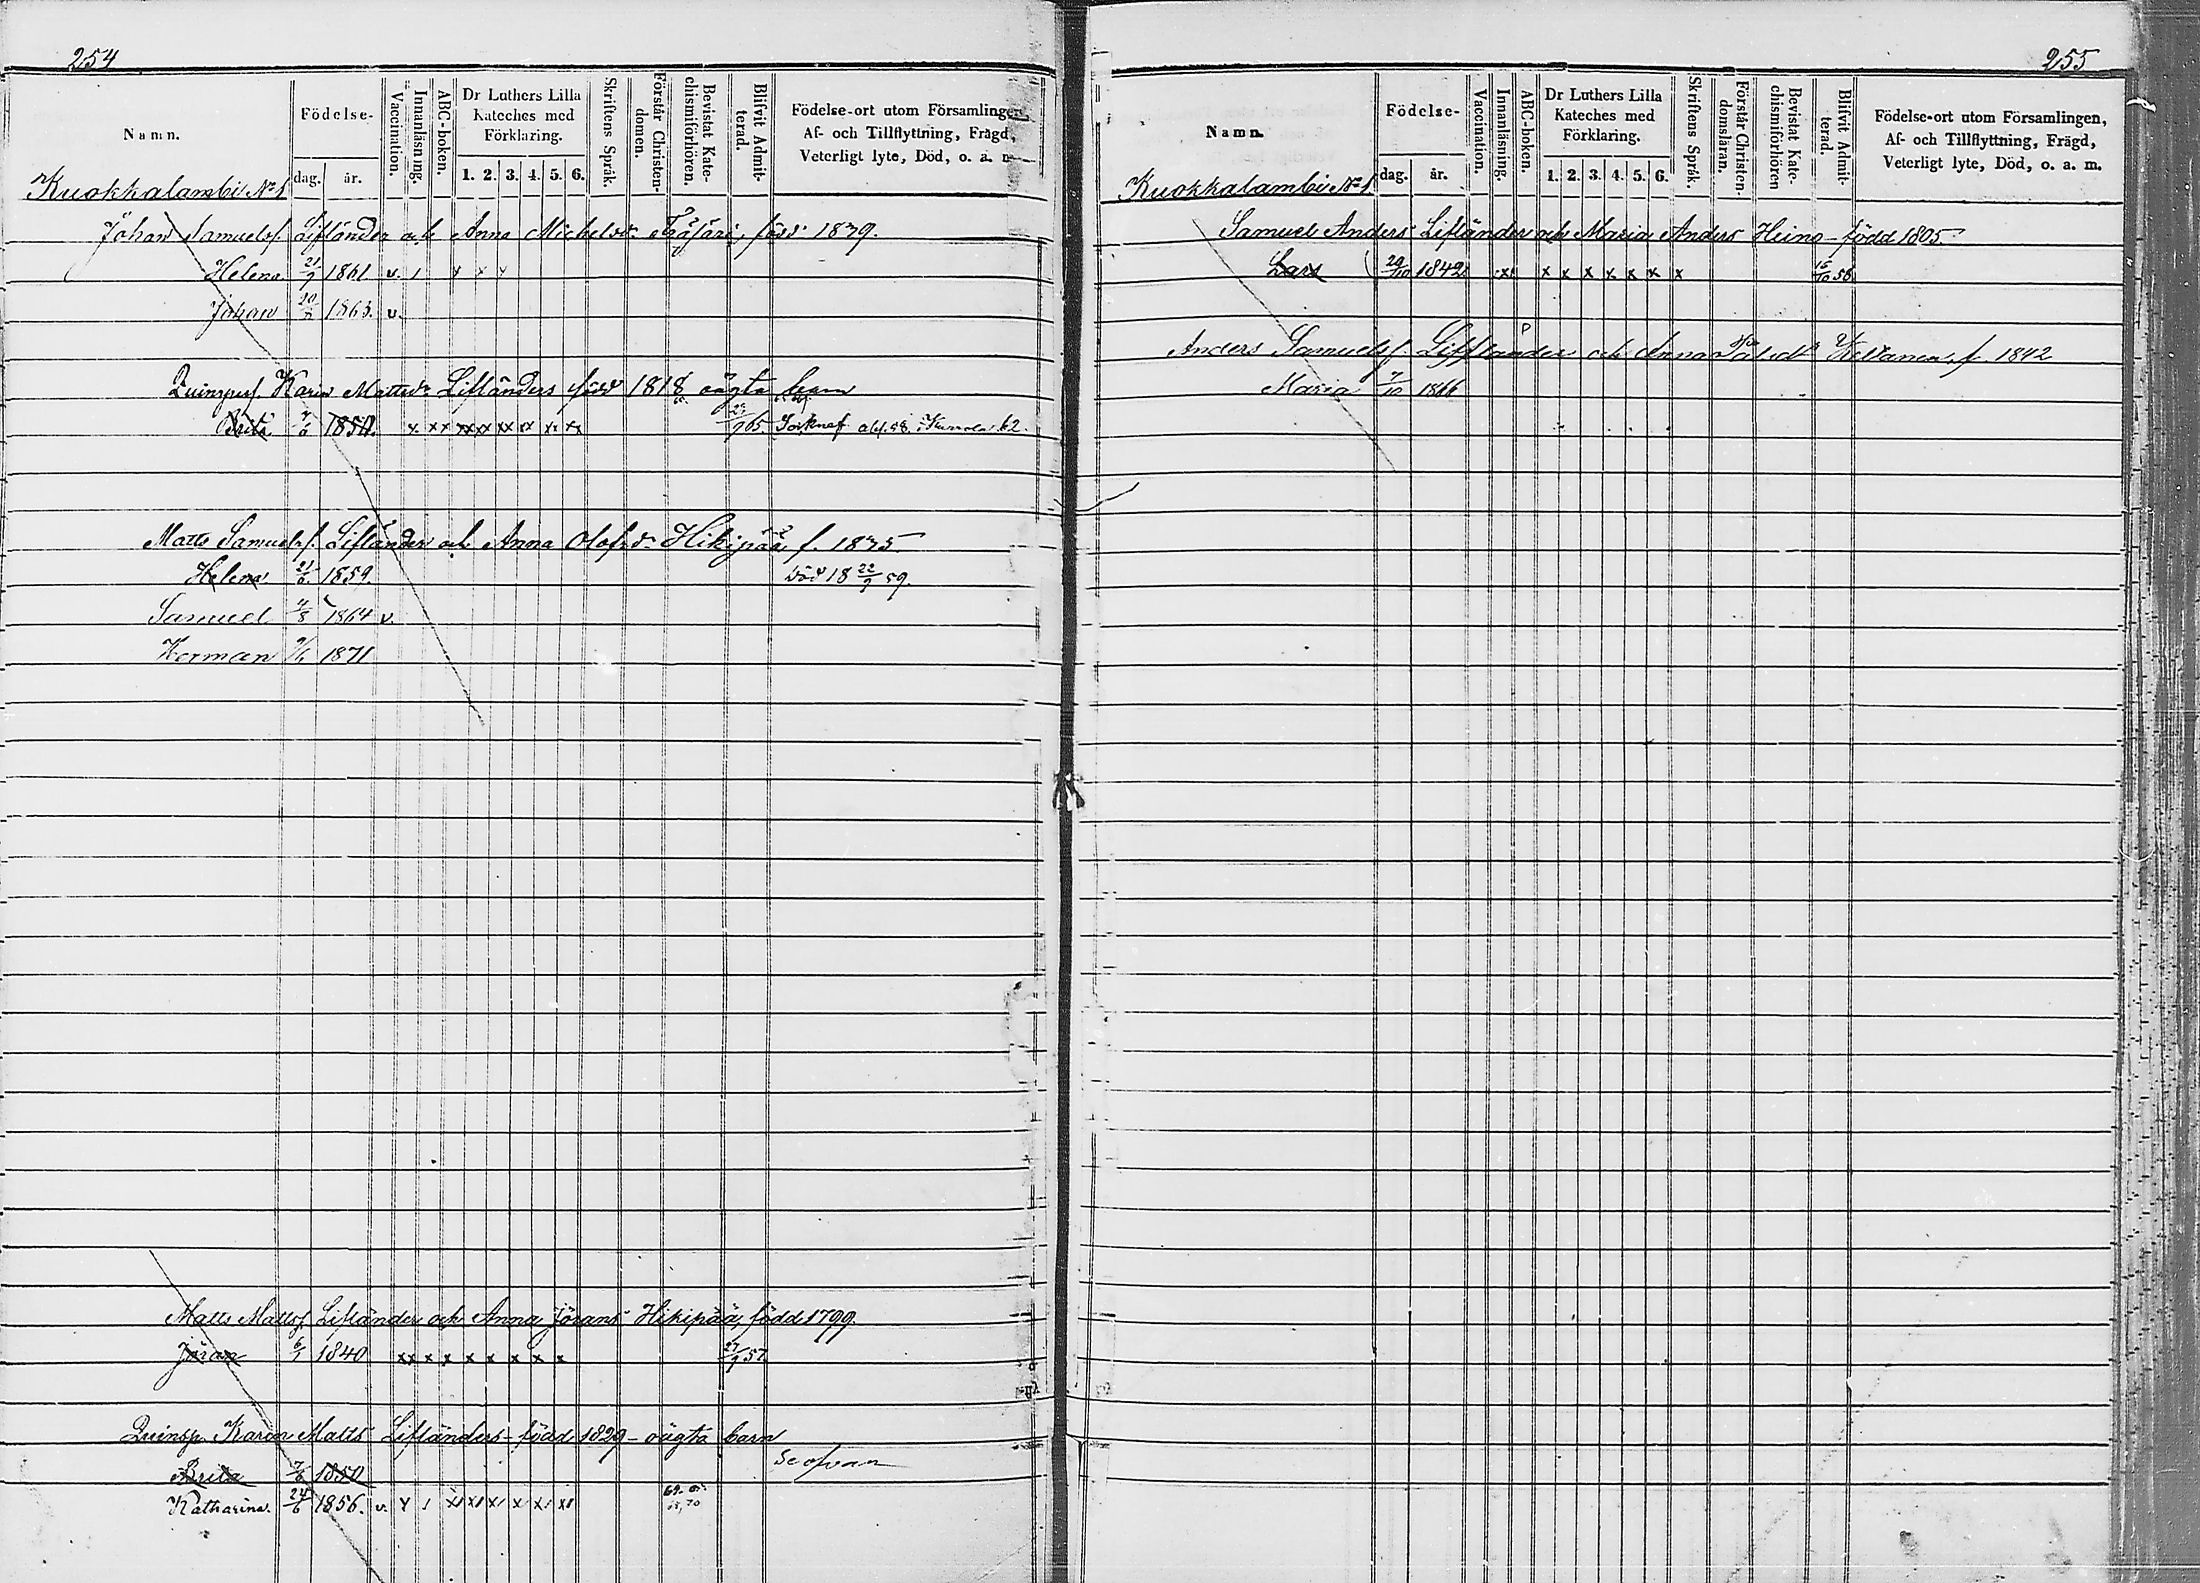 254
Namn.
Födelse-
dag. år.
Vaccination.
Innanläsning.
ABC-boken.
Dr Luthers Lilla
Kateches med
Förklaring.
1. 2. 3. 4. 5. 6.
Skriftens Språk.
Förstår Christen-
domen.
Bevistat Kate-
chismiförhören.
Blifvit Admit-
terad.
Födelse-ort utom Församlingen,
Af- och Tillflyttning, Frägd,
Veterligt lyte, Död, o. a. m
Kuokkalambi No 1
Johan Samuelsf. Lifländer och Anna Michelsdr född 1839.
Helena 21/9 1861 v. 1 x x x
Johan 1863. v.
Quinspers. Karin Mattsdr Lifländers född 1818 oägta barn
Brita 7/6 1850. x xx xx xx xx xx xx xx /9 65. 58. 62.
Matts Samuelsf. Lifländer och Anna Olofsdr Hikipää f. 1835
Helena 21/6 1859. död 18 22/9 59.
Samuel 4/8 1864 v.
Herman 1871
Matts Mattsf. Lifländer och Anna Jörans Hikipää, född 1799.
Jöran 6/1 1840 xx x x x x x x x 27/9 57.
Quinsp. Karin Matts Lifländers - född 1829 - oägta barn
Brita 7/6 1850 se ofvan
Katharina. 24/6 1856. v.
255
Namn.
Födelse-
dag. år.
Vaccination.
Innanläsning.
ABC-boken.
Dr Luthers Lilla
Kateches med
Förklaring.
1. 2. 3. 4. 5. 6.
Skriftens Språk.
Förstår Christen-
domsläran.
Bevistat Kate-
chismiförhören
Blifvit Admit-
terad.
Födelse-ort utom Församlingen,
Af- och Tillflyttning, Frägd,
Veterligt lyte, Död, o. a. m.
Kuokkalambi No 1.
Samuel Anders Lifländer och Maria Anders Heino - född 1805
Lars 29/10 1842 x x x x x x x x 15/10 58.
Anders Samuelsf. Liffländer och Anna f. 1842
Maria 7/10 1866